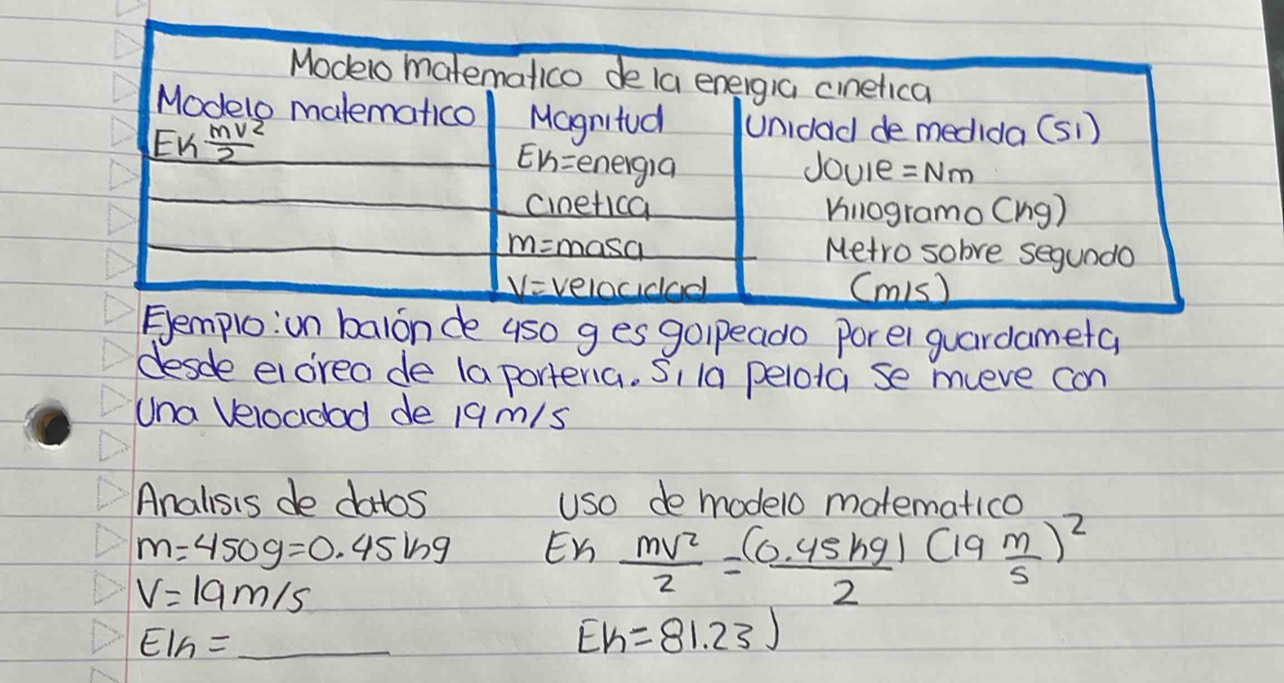 Modelo matematico de la energia cinetica
Modelo matematico Magnitud Unidad de medida (SI)
Ek mv²/2 Ek=energia Joule=Nm
cinetica Kilogramo (kg)
m=masa Metro sobre segundo
V=velocidad (m/s)
Ejemplo: un balón de 450 g es golpeado por el guardameta
desde el área de la porteria. Si la pelota se mueve con
una velocidad de 19 m/s
Analisis de datos Uso de modelo matematico
m=450g=0.45kg Ek mv²/2 = (0.45kg)/2 (19 m/s)²
V=19m/s
Ek=______ Ek=81.23J